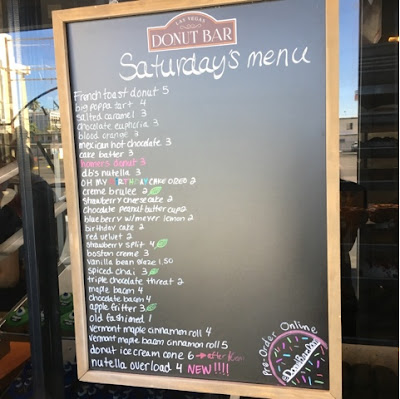 LAS VEGAS
pinkbox
DONUT BAR
Saturday's menu
French toast donut 5
big poppa tart 4
salted caramel 3
chocolate euphoria 3
blood orange 3
mexican hot chocolate 3
cake batter 3
homers donut 3
db's nutella 3
OH MY BIRTHDAY CAKE OREO 2
creme brulee 2
strawberry cheesecake 2
chocolate peanut butter cup 2
blueberry w/meyer lemon 2
birthday cake 2
red velvet 2
strawberry split 4
boston creme 3
vanilla bean glaze 1.50
spiced chai 3
triple chocolate threat 2
maple bacon 4
chocolate bacon 4
apple fritter 3
old fashioned 1
vermont maple cinnamon roll 4
vermont maple bacon cinnamon roll 5
donut ice cream cone 6
nutella overload 4 NEW!!!!
Pre-Order Online